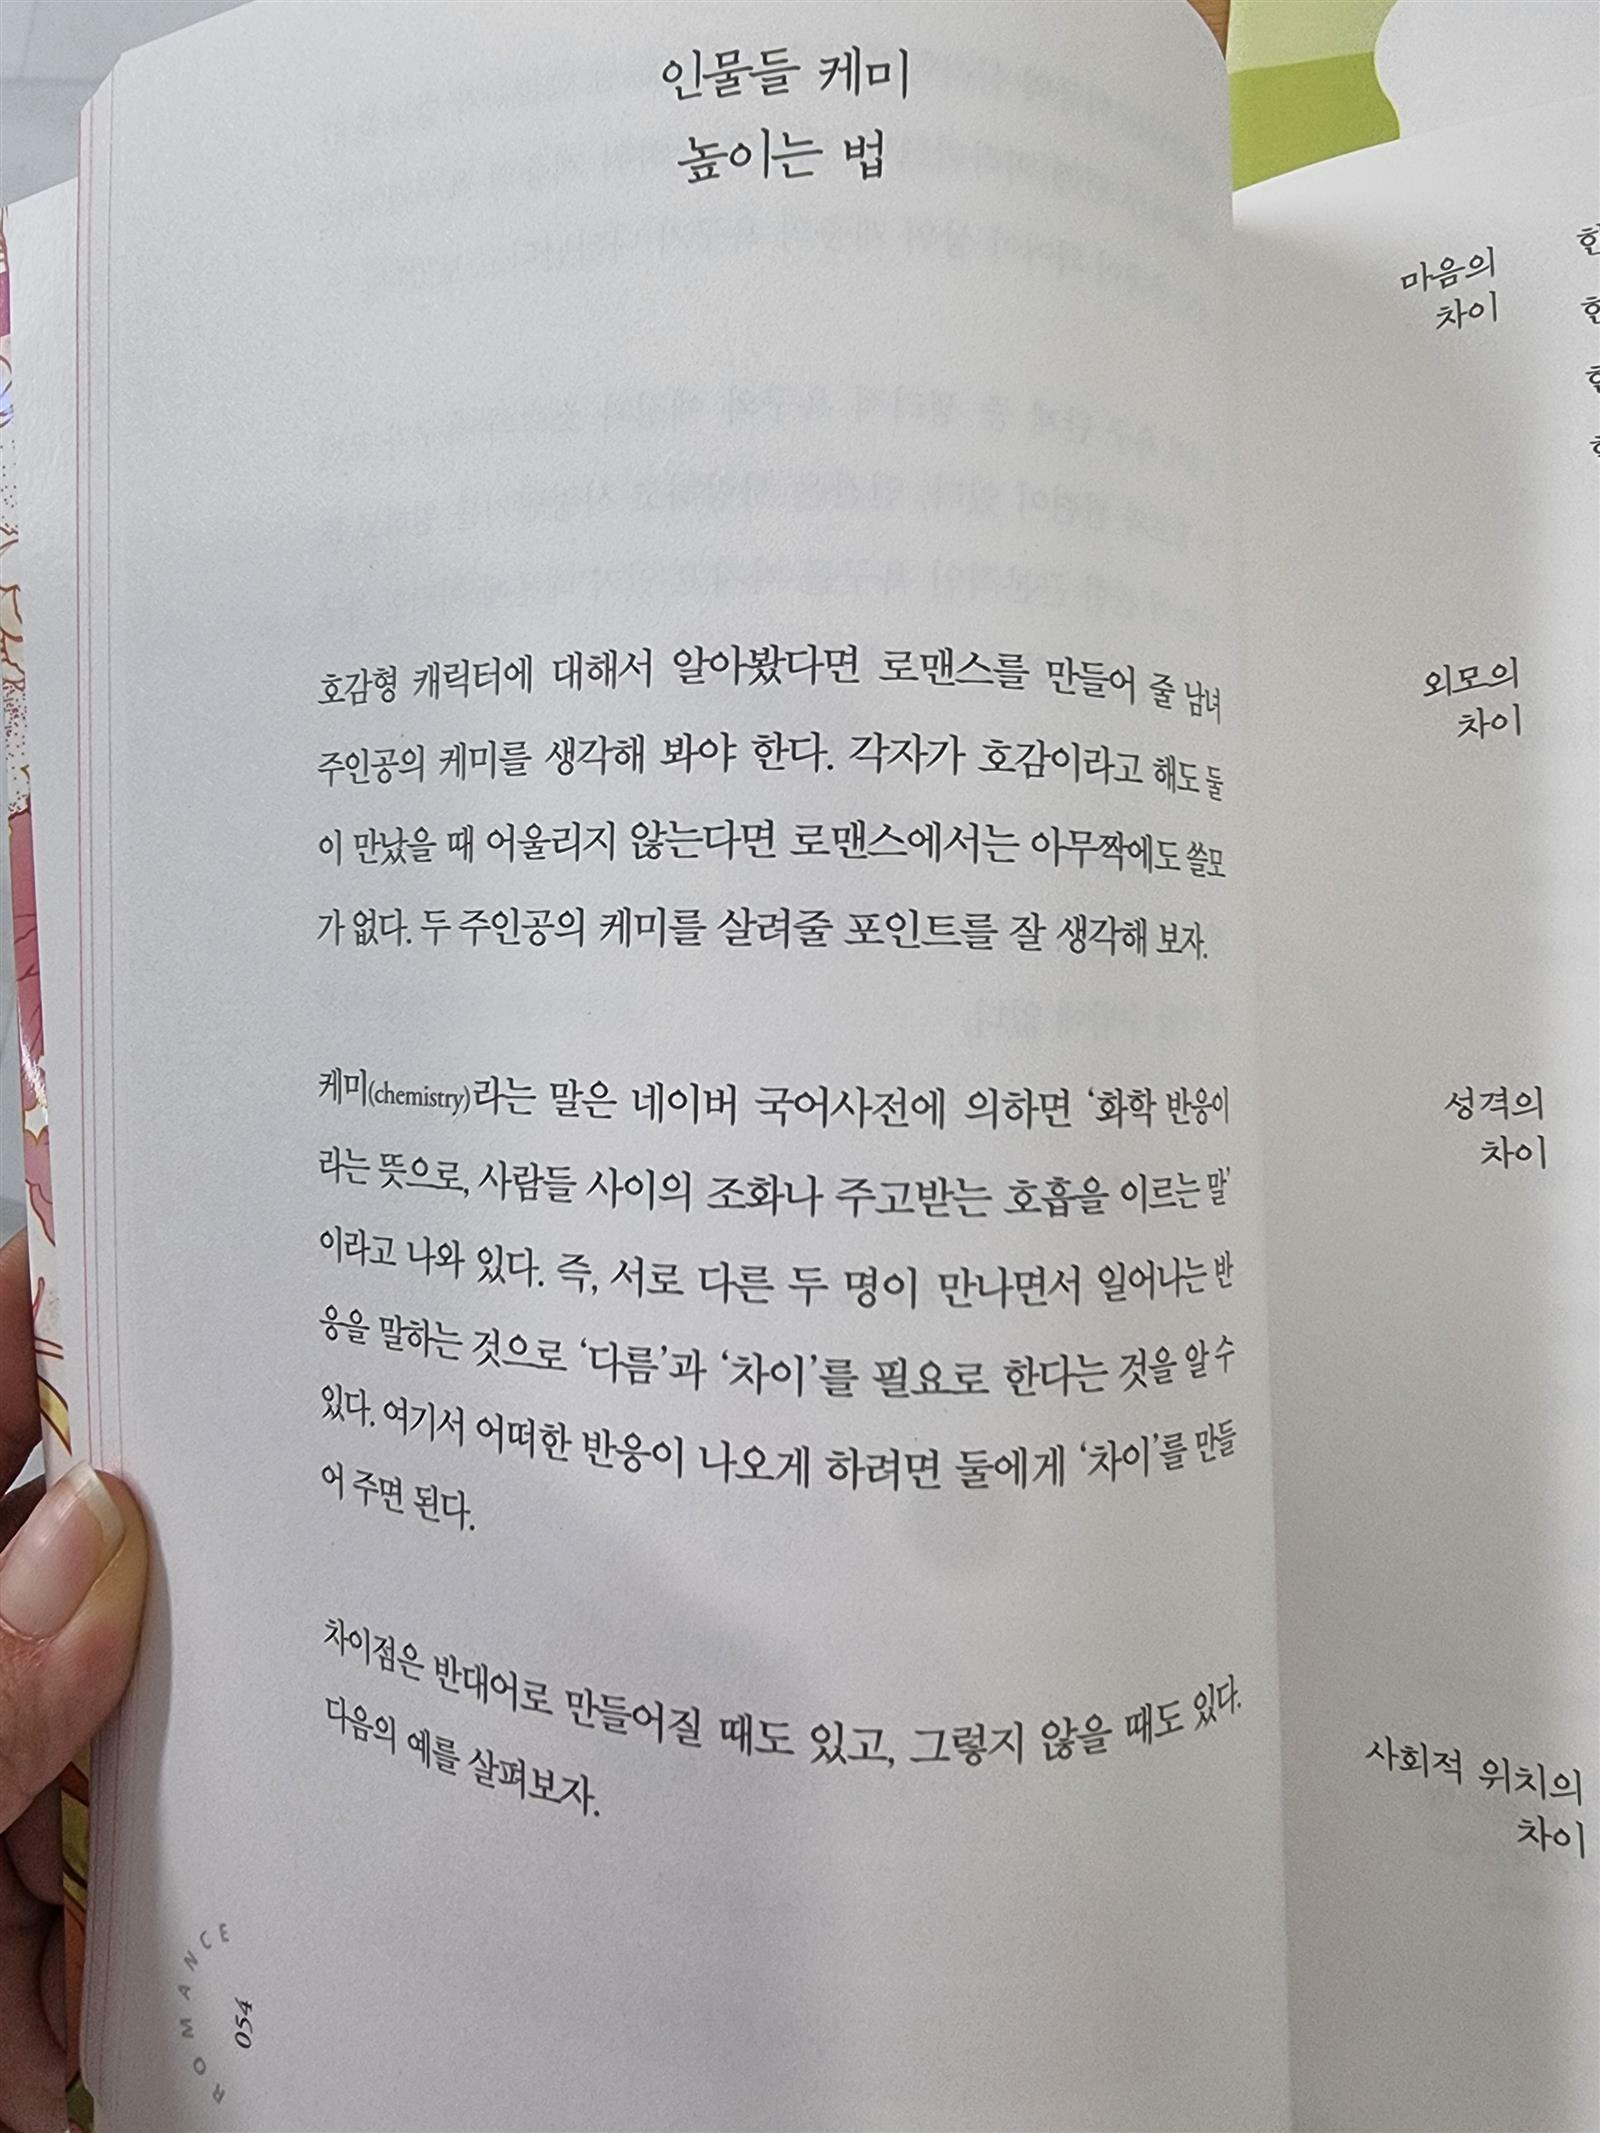 인물들 케미
높이는 법
호감형 캐릭터에 대해서 알아봤다면 로맨스를 만들어 줄 남녀
주인공의 케미를 생각해 봐야 한다. 각자가 호감이라고 해도 둘
이 만났을 때 어울리지 않는다면 로맨스에서는 아무짝에도 쓸모
가 없다. 두 주인공의 케미를 살려줄 포인트를 잘 생각해 보자.
케미(chemistry)라는 말은 네이버 국어사전에 의하면 ‘화학 반응이
라는 뜻으로, 사람들 사이의 조화나 주고받는 호흡을 이르는 말’
이라고 나와 있다. 즉, 서로 다른 두 명이 만나면서 일어나는 반
응을 말하는 것으로 ‘다름’과 ‘차이’를 필요로 한다는 것을 알 수
있다. 여기서 어떠한 반응이 나오게 하려면 둘에게 ‘차이’를 만들
어 주면 된다.
차이점은 반대어로 만들어질 때도 있고, 그렇지 않을 때도 있다.
다음의 예를 살펴보자.
ROMANCE
054
마음의
차이
외모의
차이
성격의
차이
사회적 위치의
차이